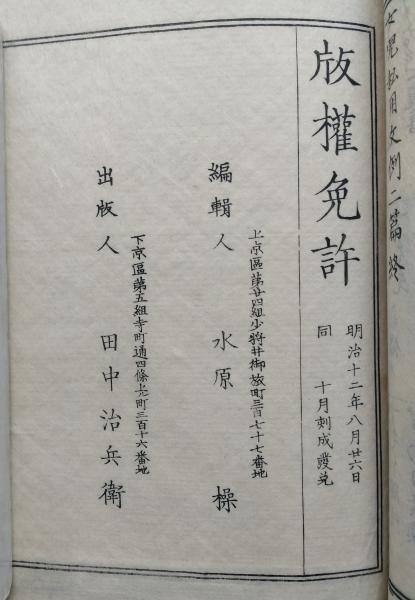 女児私用文例二篇終
版權免許
明治十二年八月廿六日
同 十月刻成發兌
上京區第廿四組少將井御旅町三百七十七番地
編輯人 水原 操
下京區第五組寺町通四條上町三百十六番地
出版人 田中治兵衛